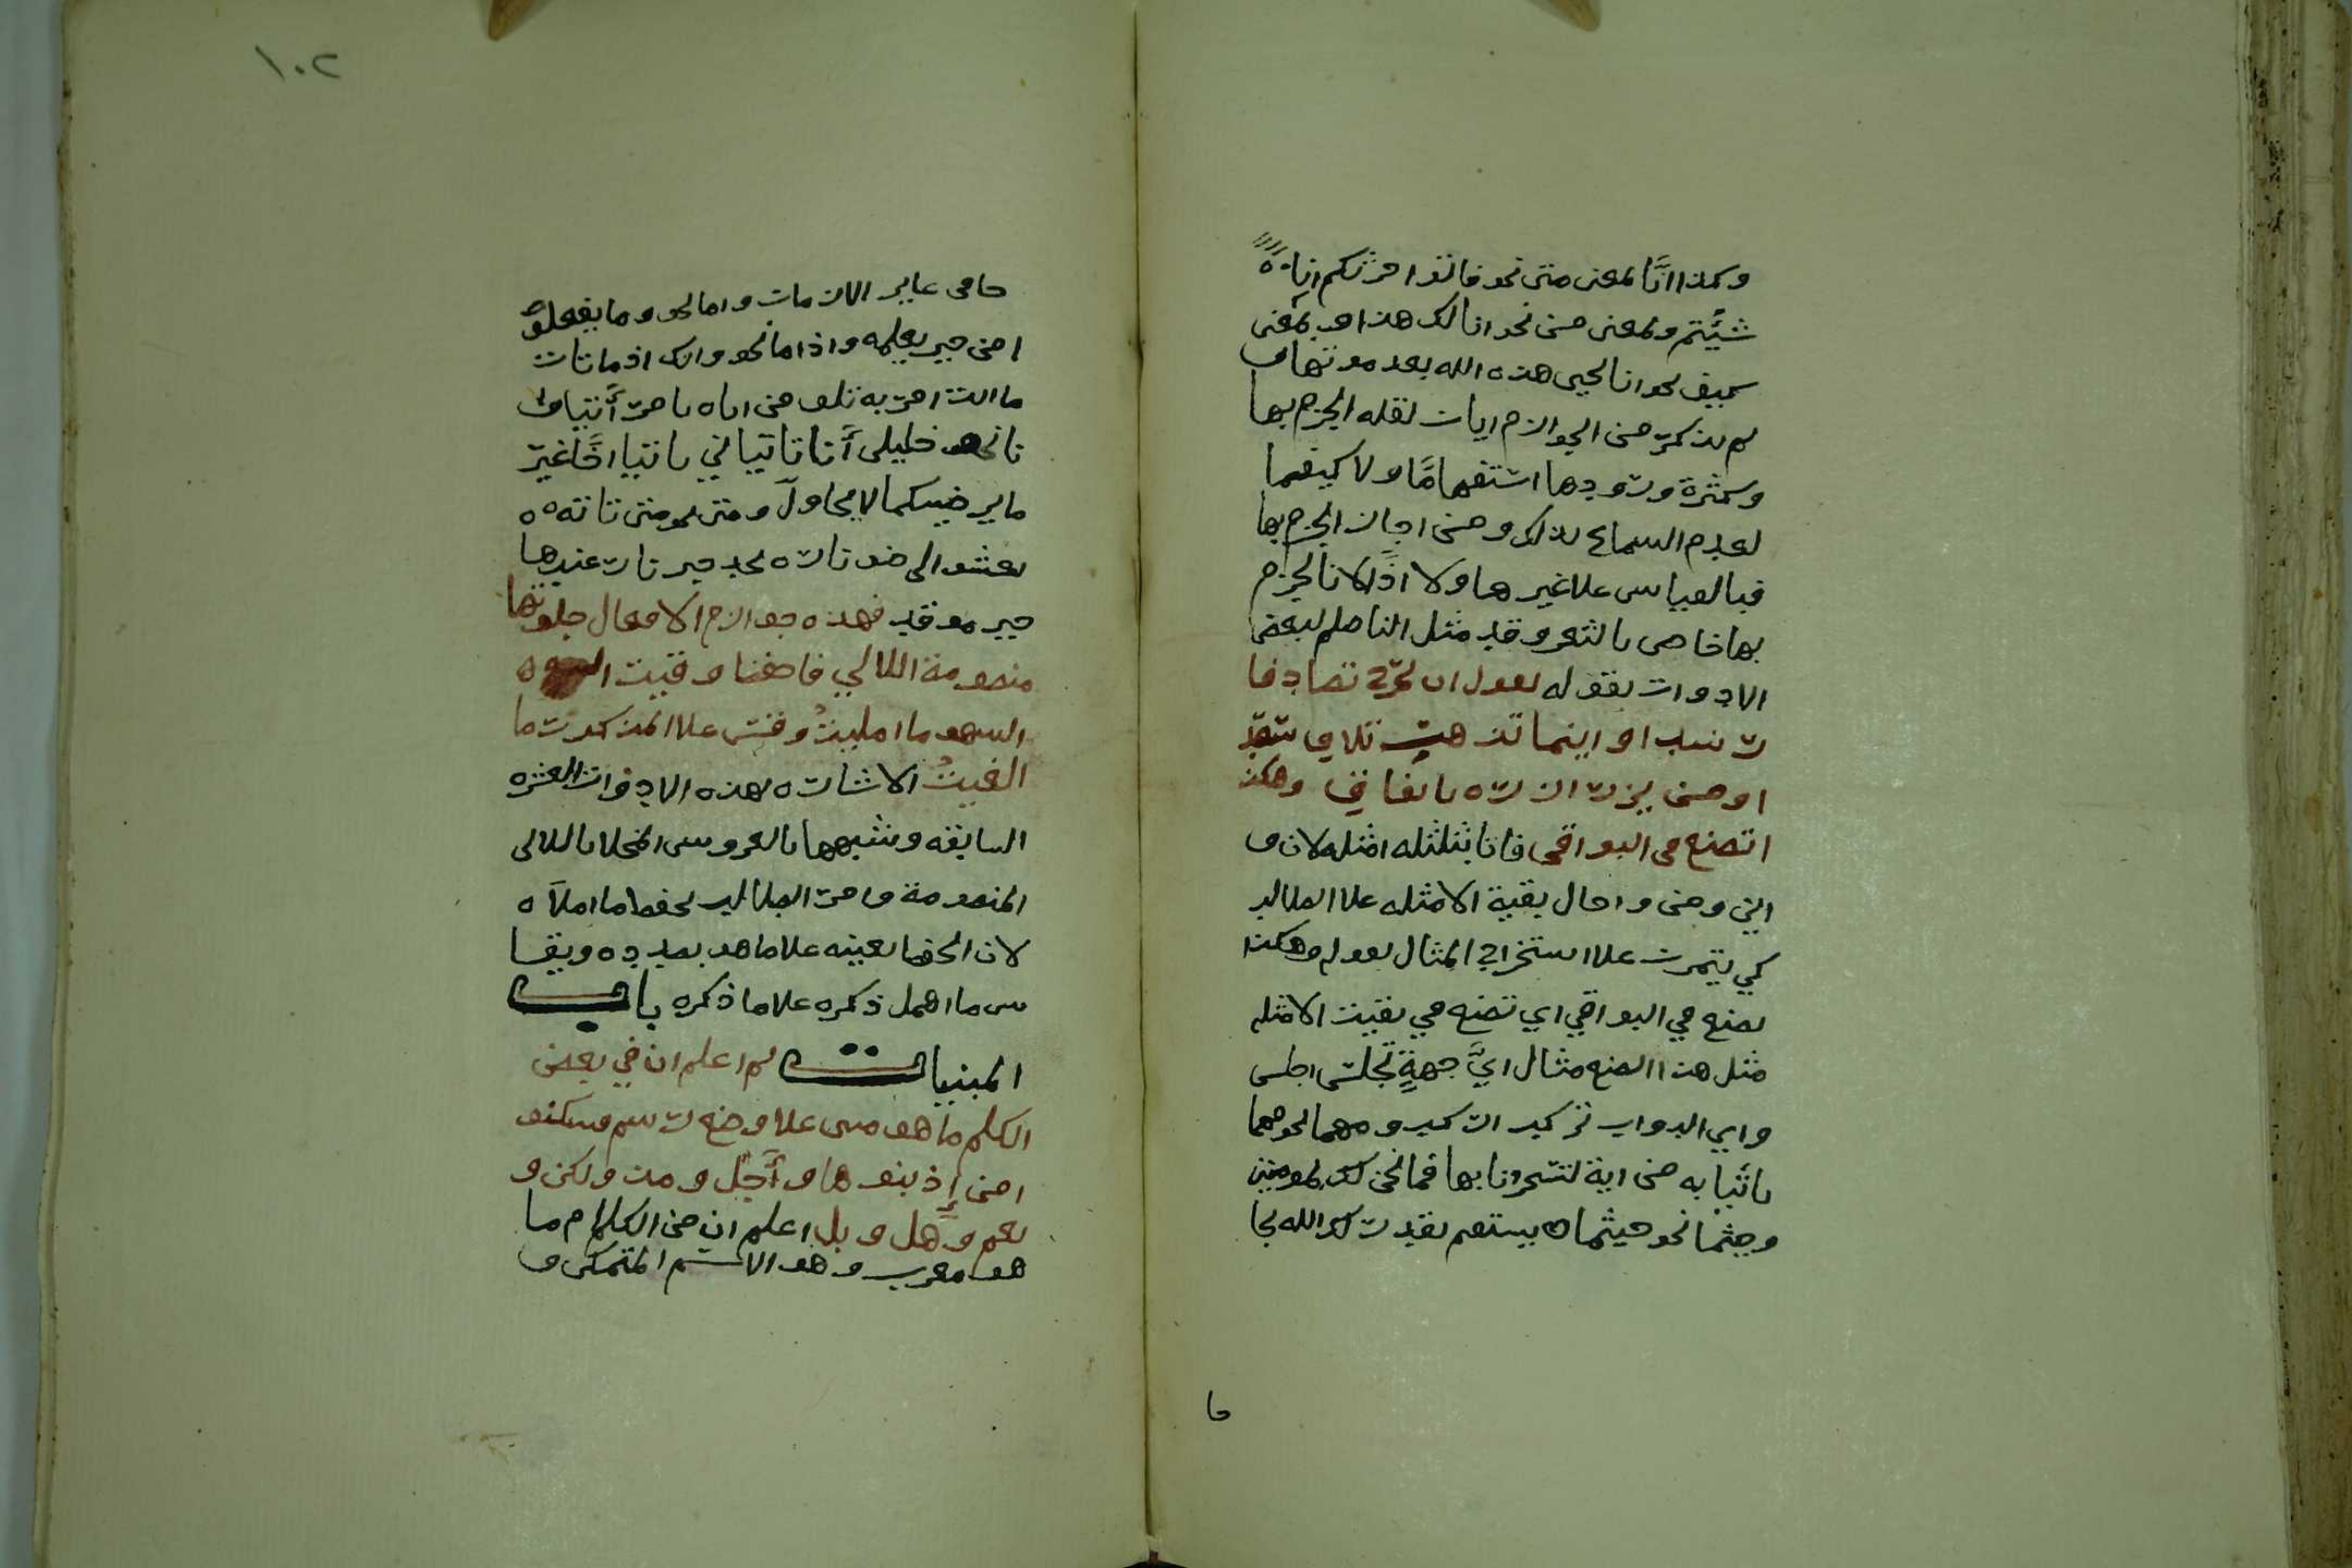 وكذا انَّا بمعنى متى نحو فاتوا حرثكم انا
شيئتم وبمعنى من نحو انا لك هذا اي بمعنى
كييف نحو انا يحيي هذه الله بعد موتها و
لم يذكر من الجوازم ايان لقله الجزم بها
وكثرة ورودها استفهامًا ولا كيفما
لعدم السماع بذلك ومن اجاز الجزم بها
فبالقياس علا غيرها ولا اذًا لان الجزم
بها خاص بالشعر وقد مثل الناظم لبعض
الادوات بقوله تقول ان تخرج تصادف
رشدا او اينما تذهب تلاقي سعد
او من يزر ازره باتفاق وهكذ
ا تصنع في البواقي فاتا بثلثله امثله لان و
اين ومن واحال بقية الامثله علا الطالب
كي يتمرن علا استخراج المثال بقوله وهكذا
تصنع في البواقي اي تصنع في بقيت الامثله
مثل هذا الصنع مثال ايَّ جهةٍ تجلس اجلس
واي الدواب تركب اركب ومهما نحو مهما
تاتنا به من اية لتسحرنا بها فما نحن لك بمومنين
وحيثما نحو حيثما تستقم يقدر لك الله نجا
حا
حا في غابر الازمان وما نحو وما تفعلو
ا من خير يعلمه واذ ما نحو وانك اذ ما تات
ما انت امر به تلف من اياه تامر آتيا وا
نا نحو خليلي أنا تاتياني تاتيا اخًا غير
ما يرضيكما لا يحاول ومتى نحو متى تاته
تعشو الى ضو ناره تجد خير نار عندها
خير موقد فهذه جوازم الافعال جلوتها
منضومة اللالي فاحفظ وقيت
السهو ما امليتُ وقس علا المذكور ما
الغيتُ الاشاره بهذه الادوات العشره
السابقه وشبهها بالعروس المحلا باللالي
المنضومة وامر الطالب بحفظ ما املاه
لان الحفظ يعينه علا ما هو بصدده ويقيا
س ما اهمل ذكره علا ما ذكره باب
المبنيات ثم اعلم ان في بعض
الكلم ما هو مبني علا وضع رسم فسكنو
ا من إذ بنوها وأَجل ومذ ولكن و
نعم وهل وبل اعلم ان من الكلام ما
هو معرب وهو الاسم المتمكن و
١٠٢